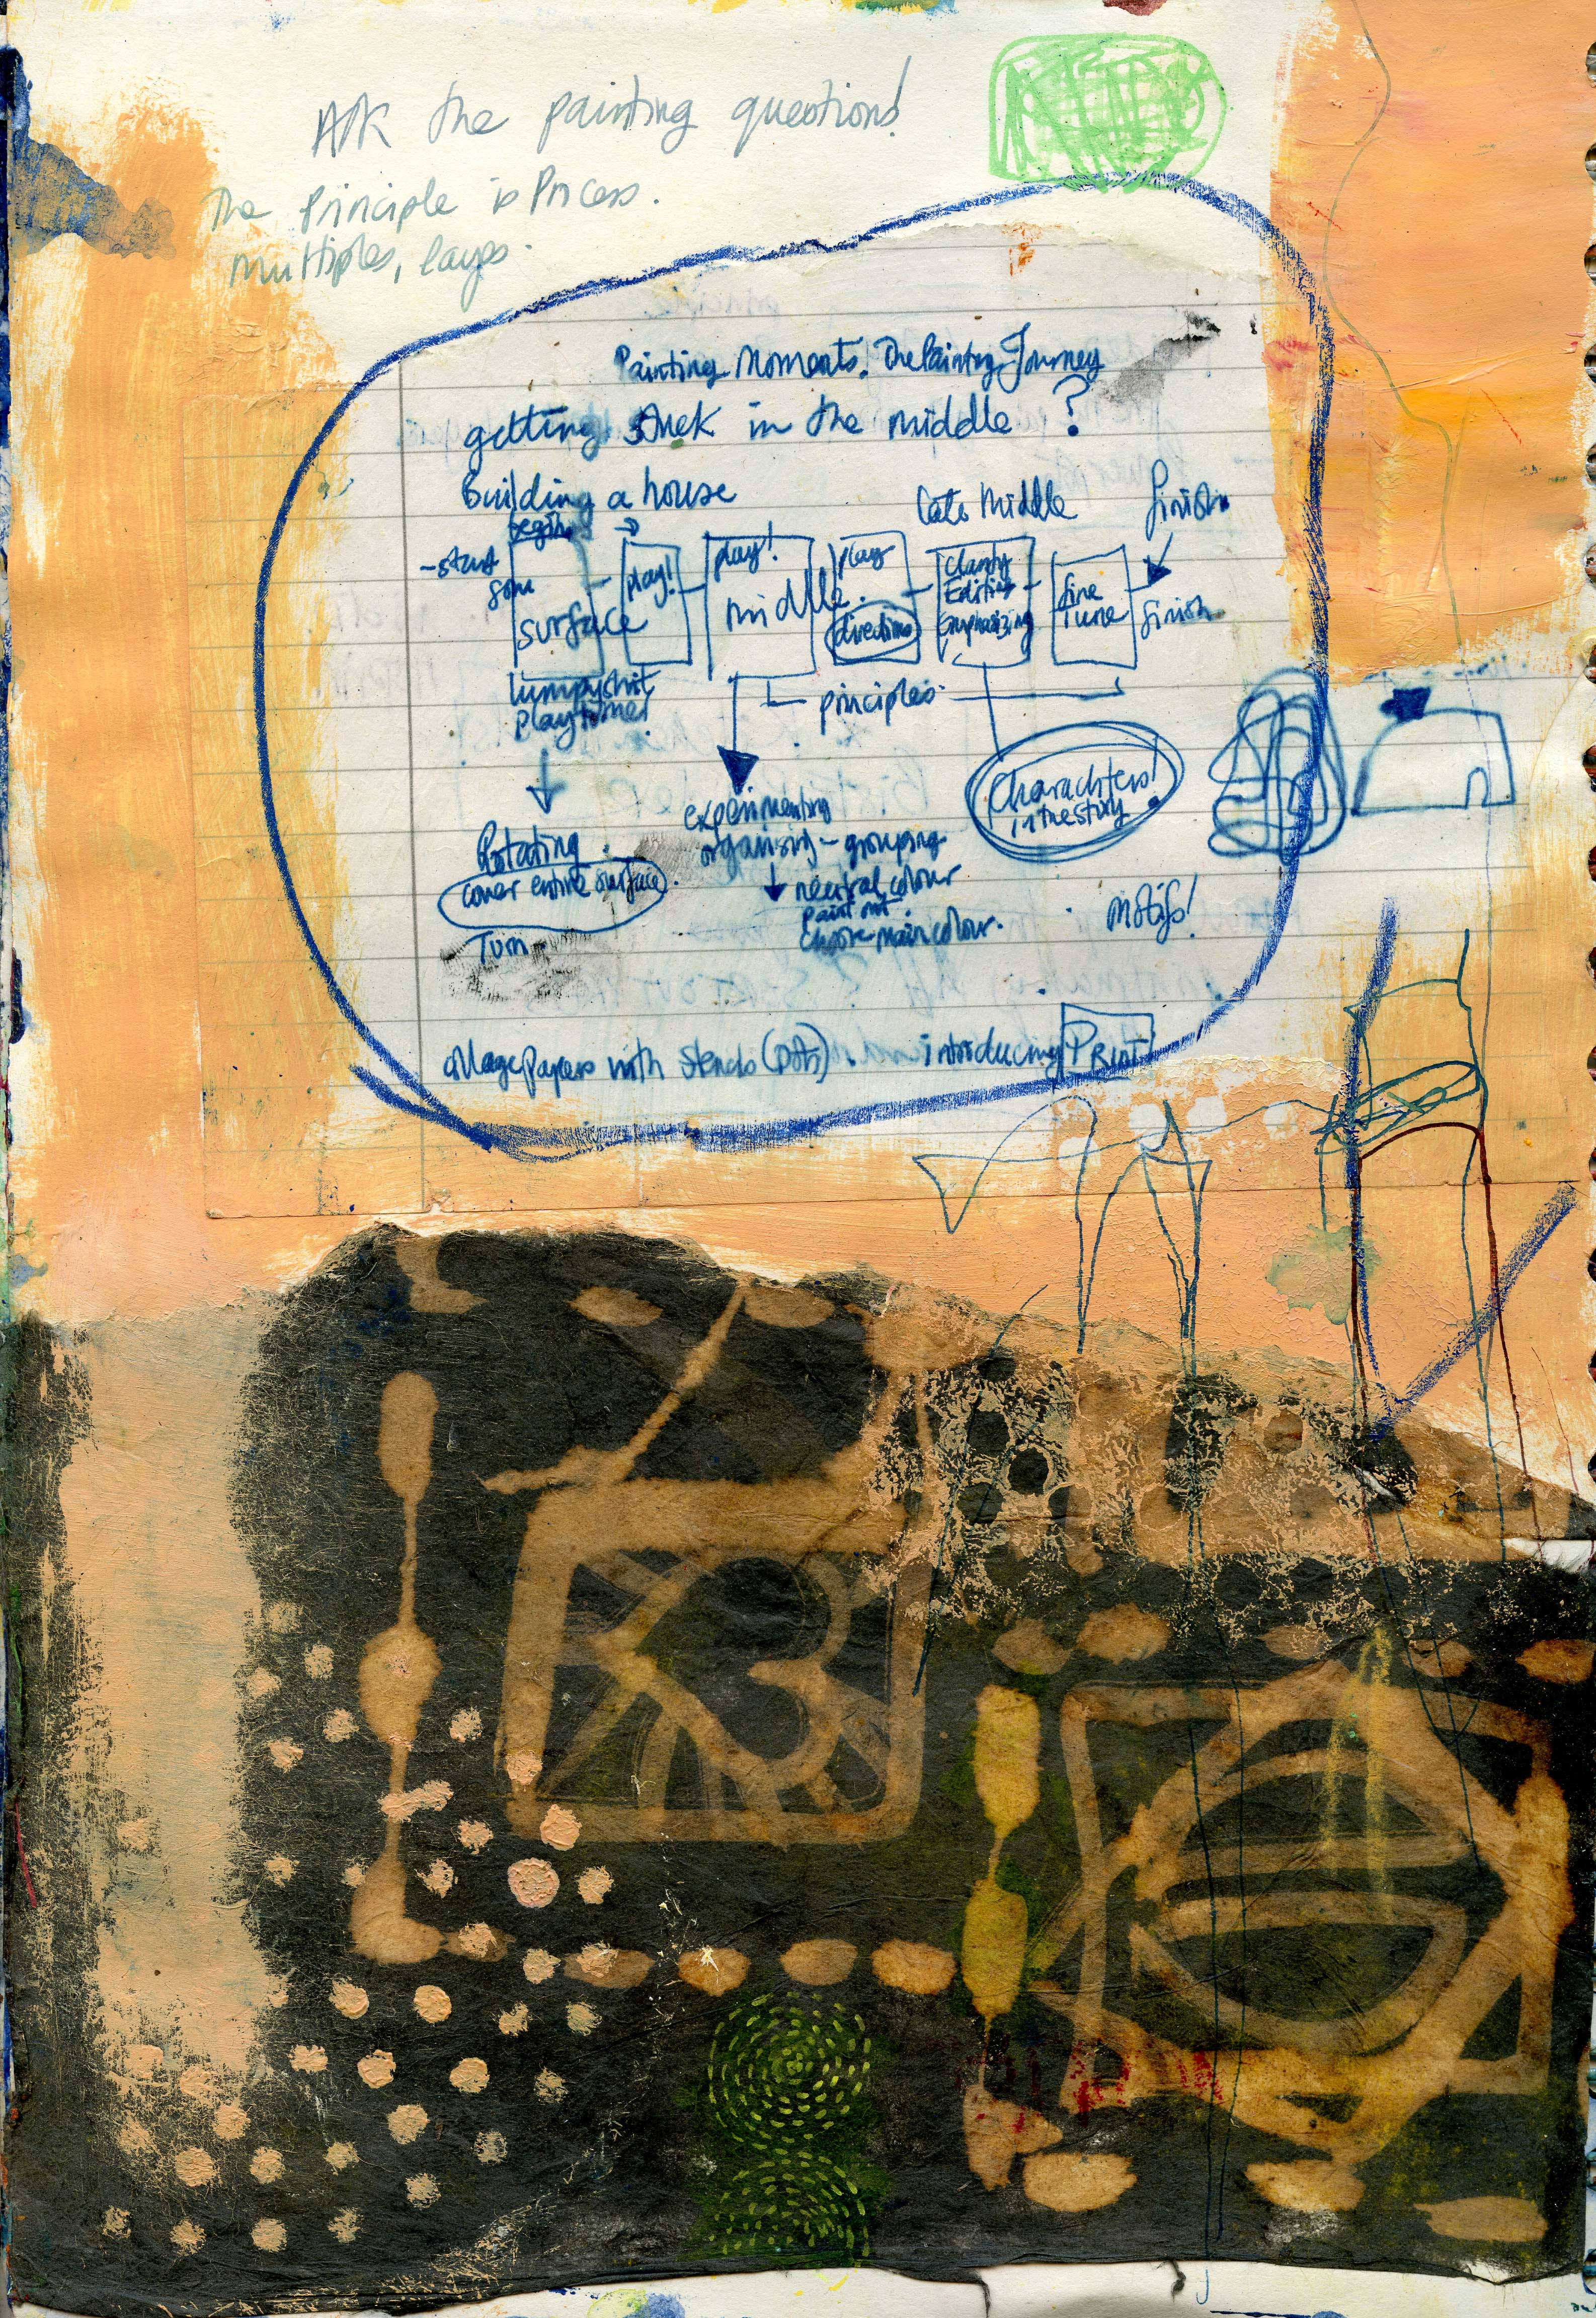 Ask the painting questions!
The Principle is Process.
Multiples, layers.
Painting Moments. The Painting Journey
getting stuck in the middle ?
Building a house
late Middle
finish
begin
- start
play!
play!
play
Clarity
Editing
Emphasizing
fine
Tune
surface
middle
directions
finish
lumpy shit
playtime!
principles
Charachters!
in the story
experimenting
organising - grouping
neutral colour
paint out
choose main colour.
Rotating
cover entire surface
Turn
Motifs!
collage papers with stencils (Dots). introducing PRINT